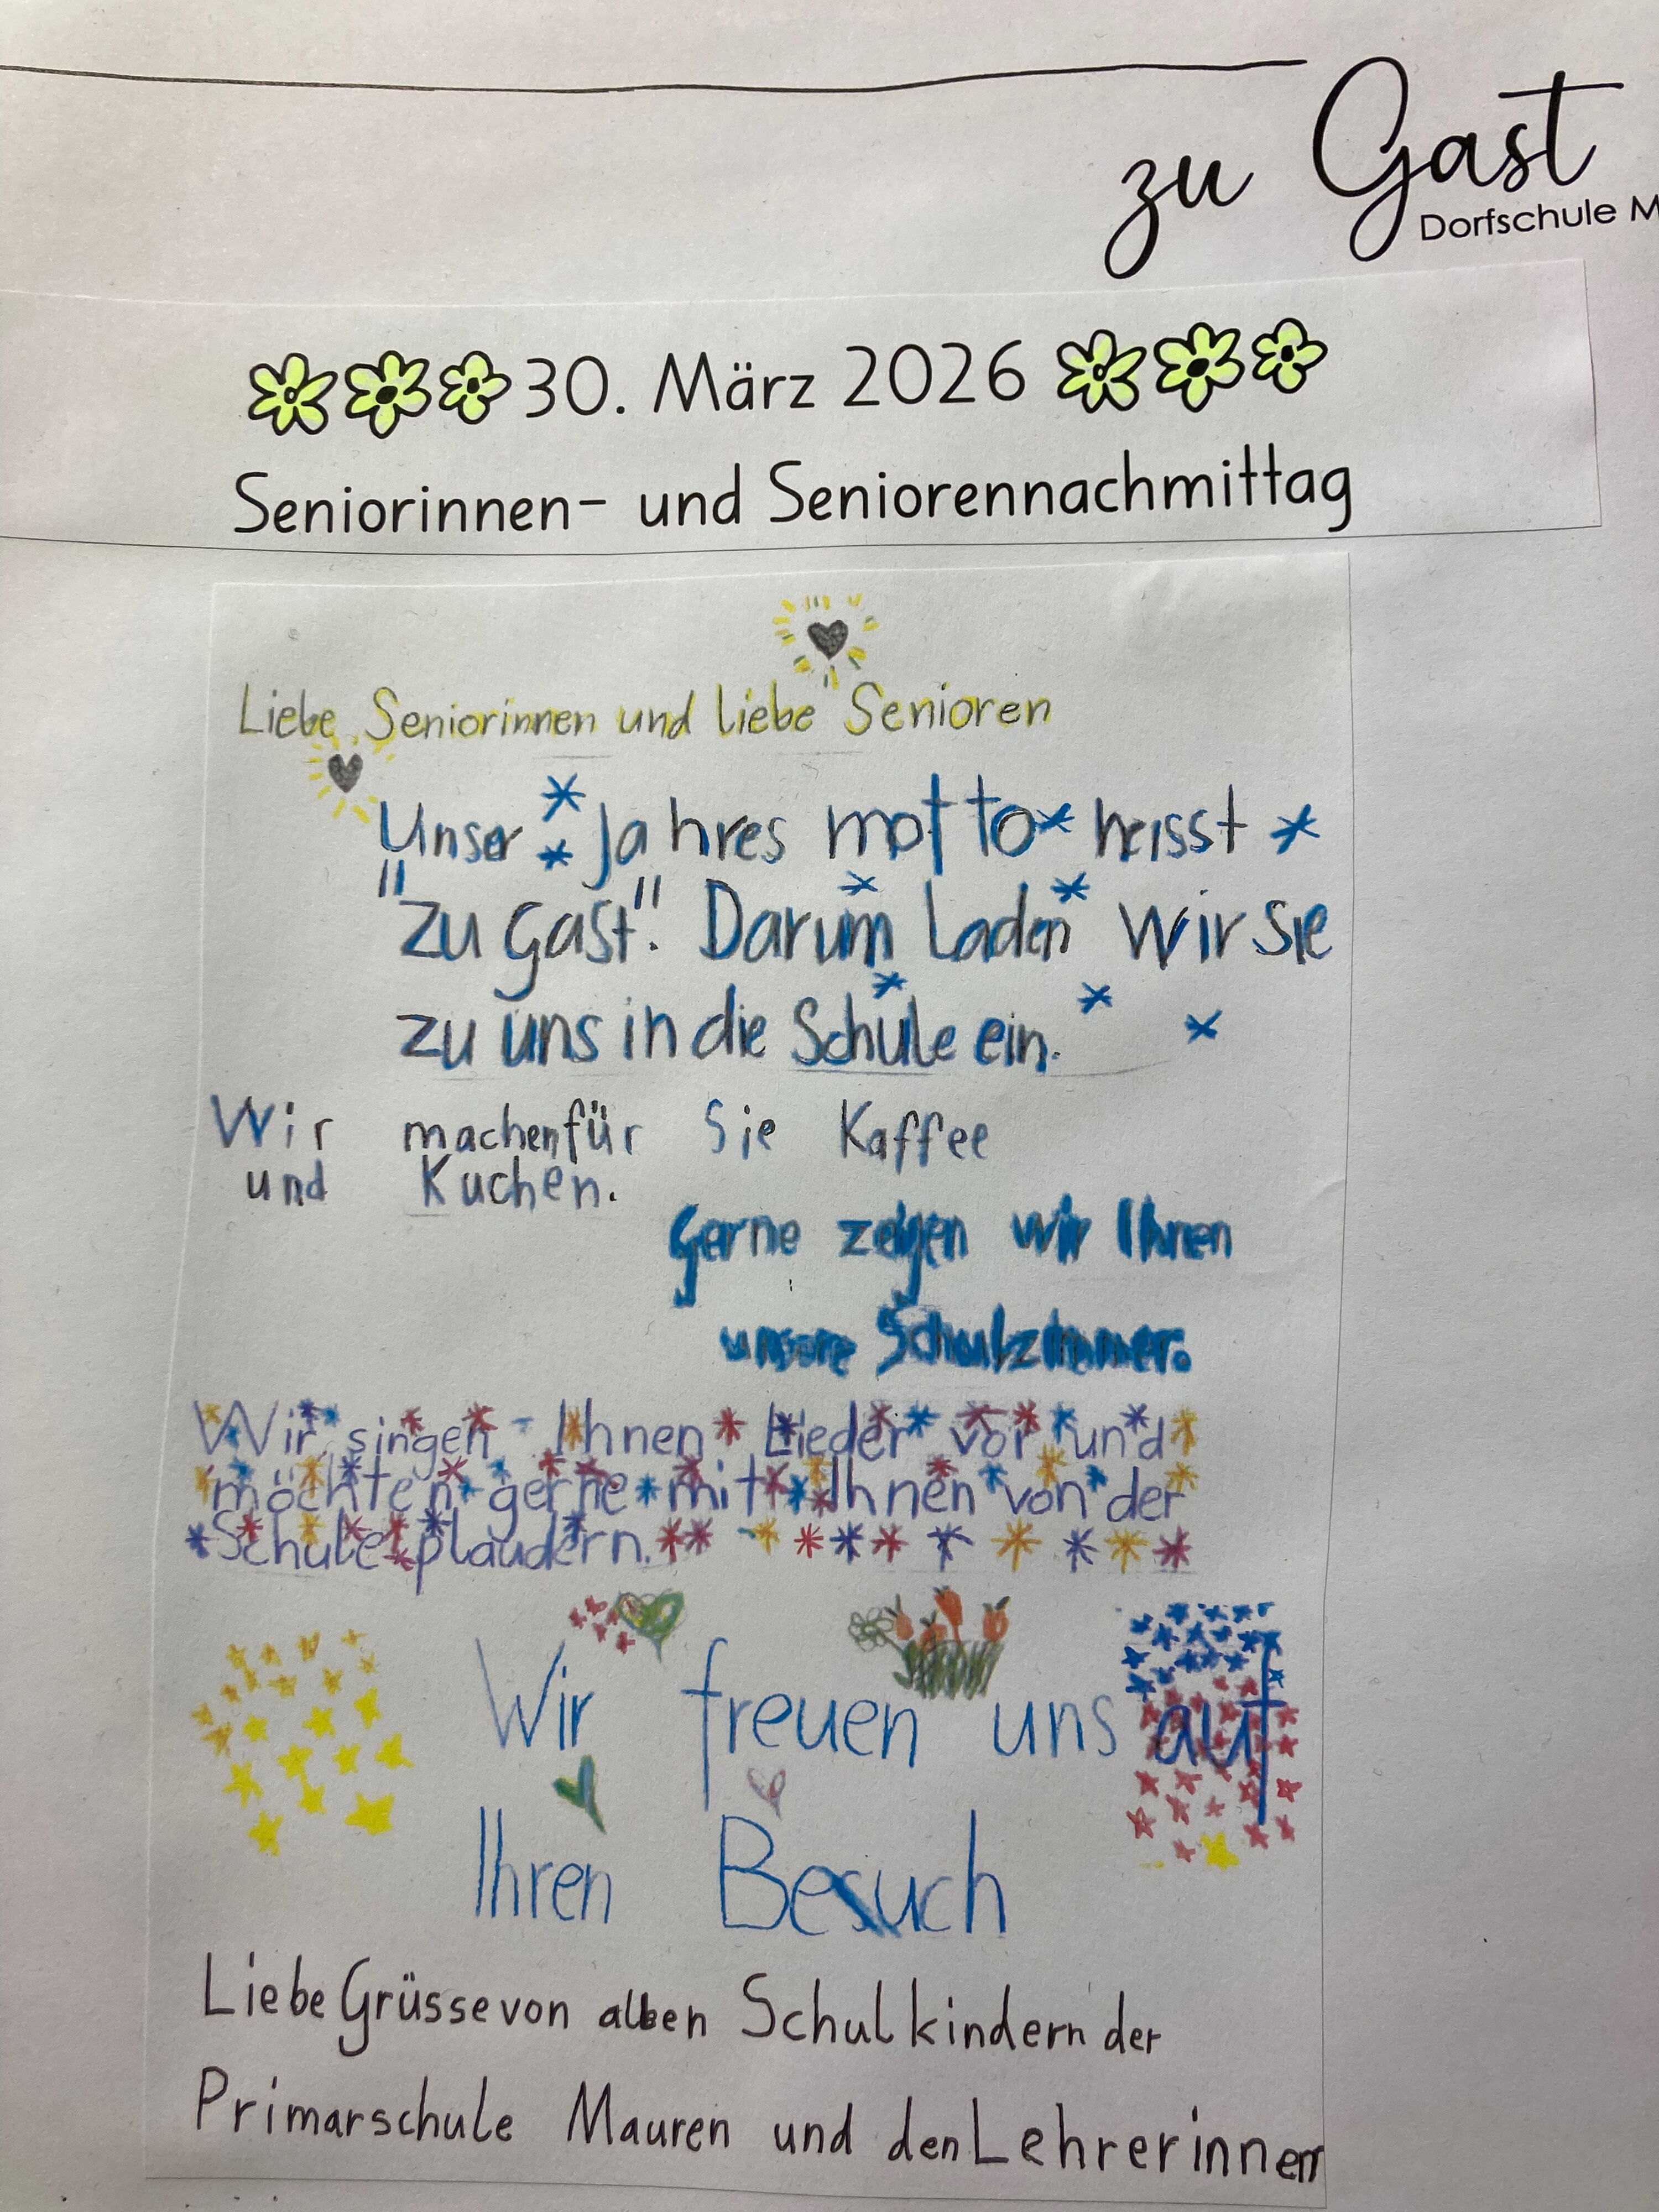 zu Gast
Dorfschule M
30. März 2026
Seniorinnen- und Seniorennachmittag
Liebe Seniorinnen und liebe Senioren
Unser Jahres motto heisst
"zu Gast". Darum laden wir sie
zu uns in die Schule ein.
Wir machen für Sie Kaffee
und Kuchen.
Gerne zeigen wir Ihnen
unsere Schulzimmer.
Wir singen Ihnen Lieder vor und
möchten gerne mit Ihnen von der
Schule plaudern.
Wir freuen uns auf
Ihren Besuch
Liebe Grüsse von allen Schulkindern der
Primarschule Mauren und den Lehrerinnen